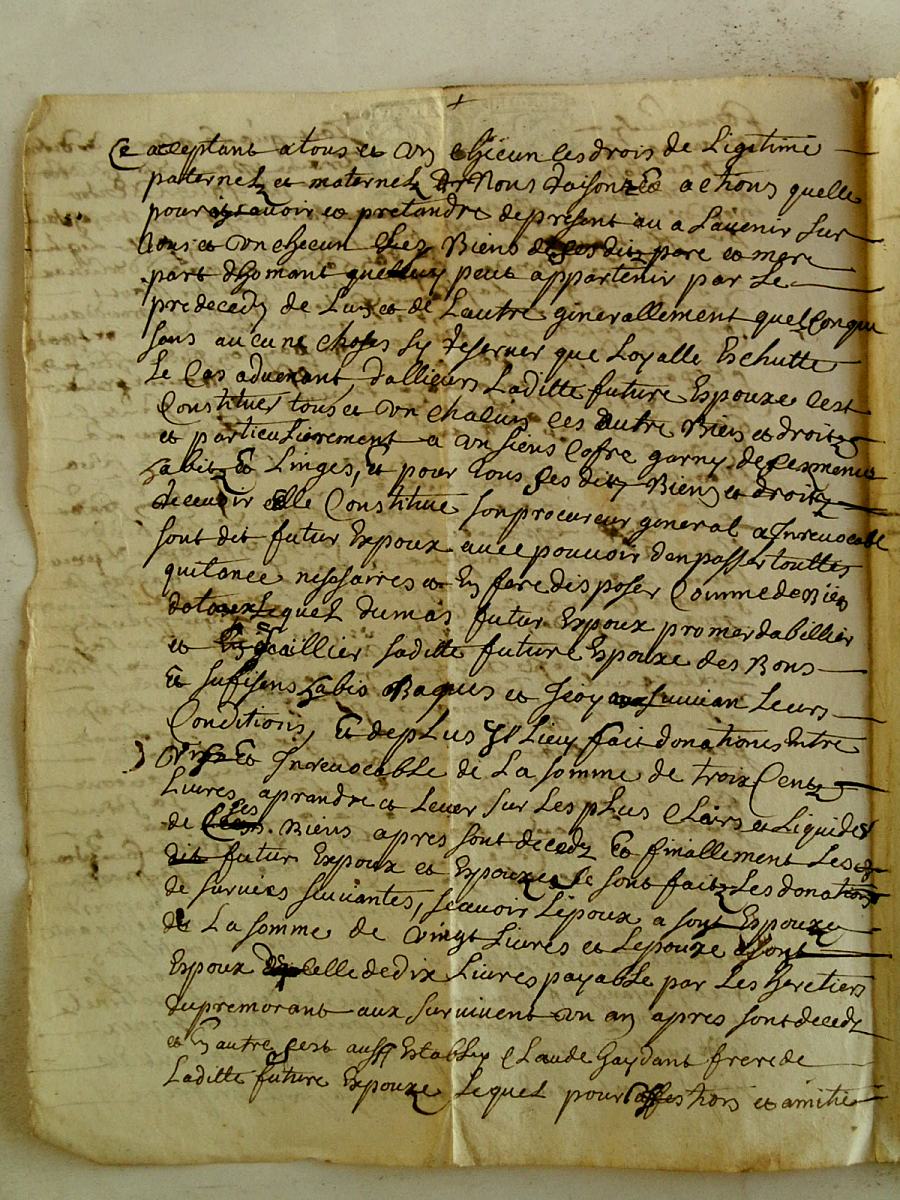 Ce acceptant a tous et un chẽcun les drois de Legitime
paternelz et maternelz Noms Raisonz Et actions quelle
pouroit avoir et pretandre de present au a Lavenir Sur
tous et un checun Biens desdits pere et mere
part dhomant quelluy peut appartenir par Le
predecedz de Lun et de Lautre ginerallement quelconque
sans aucune choses sy Reserver que Loyalle Eschutte
Le Cas advenant dallieurs Laditte future Espouxe sest
Constituer tous et un chalun ses autre Biens et droitz
et particulierement a un siens Cofre garny de ses menus
habitz Et Linges, Et pour tous ses ditz Biens et droitz
Recevoir elle Constitue son procureur general et Inrevocable
sont dit futur Expoux avec pouvoir den passer touttes
quitance nessaires et En fere disposer Comme de Biẽs
dotaux Lequel Dumas futur Expoux promer dabillier
et Joaillier saditte future Espouxe des Bons
Et sufisens habis Baques et Jeoyaux suivian Leurs
Conditions, Et de plus Luy fait donations Entre
Vifz Et Inrevocable de La somme de troix Centz
Livres, aprandre et Lever sur Les plus Clairs et Liquides
de ses Biens apres sont decedz Et finallement Lesd
futur Expoux et Expouxe Se sont faitz Les donations
de survies suivantes, scavoir Lépoux a sont Espouxe
de La somme de vingt Livres et Lepouxe a sont
Expoux celle de dix Livres payable par Les heretiers
du premorant aux survivent un an apres sont decedz
et En autre sest aussy Establi Claude Gaydant frere de
Laditte future Expouxe Lequel pour affections et amitie